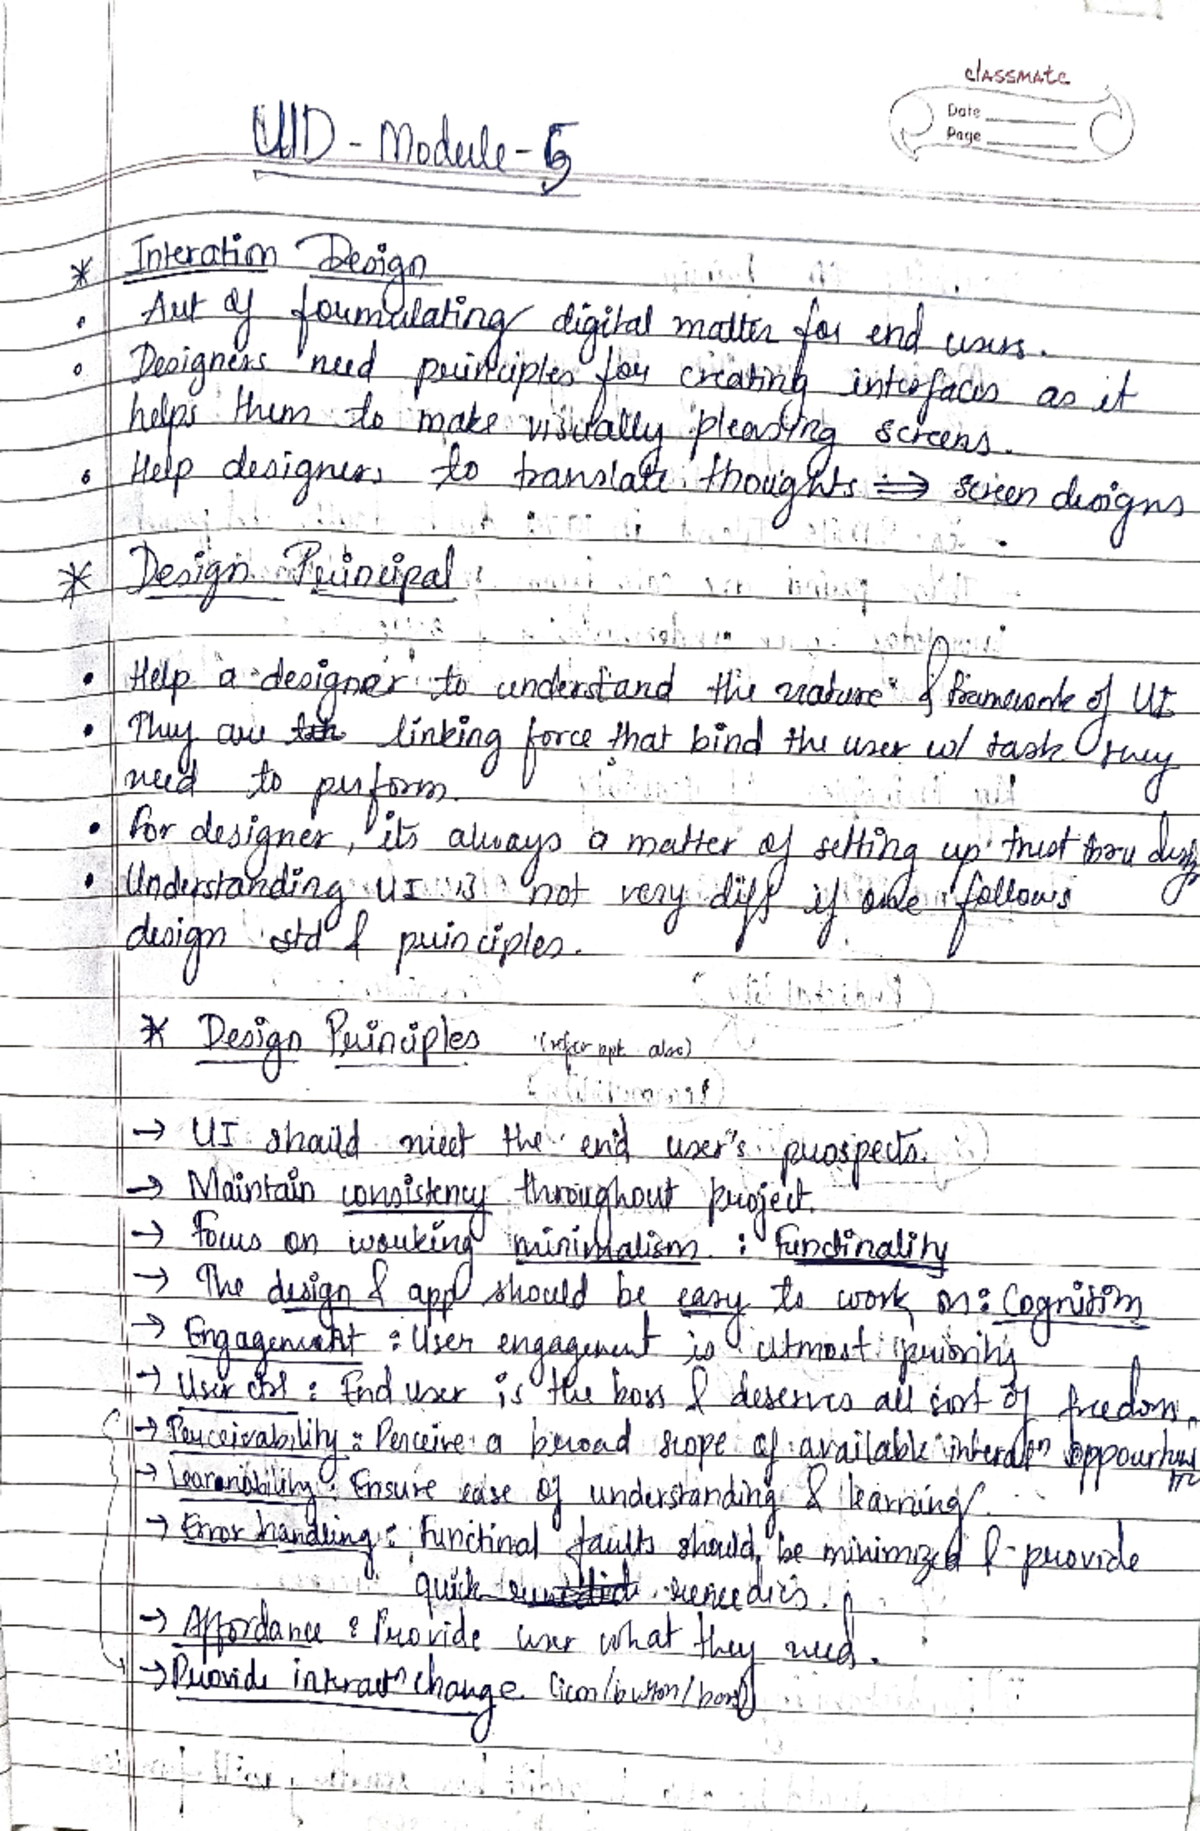 classmate
Date
Page
UID - Module - 5
* Interation Design
• Art of formulating digital matter for end users.
• Designers need principles for creating interfaces as it
helps them to make visually pleasing screens.
• Help designers to translate thoughts ⇒ screen designs
* Design Principal
• Help a designer to understand the nature & framework of UI
• They are linking force that bind the user w/ task they
need to perform.
• For designer, its always a matter of setting up trust thru
• Understanding UI is not very diff if one follows
design std & principles.
* Design Principles (refer ppt also)
→ UI should meet the end user's prospects.
→ Maintain consistency throughout project.
→ Focus on working minimalism : Functinality
→ The design & app should be easy to work on : Cognitism
→ Engagement : User engagement is utmost priority
→ User ctrl : End user is the boss & deserves all sort of freedom.
→ Perceivability : Perceive a broad scope of available
→ Learnability : Ensure ease of understanding & learning.
→ Error handling : Functinal faults should be minimized & provide
quick remedies.
→ Affordance : Provide user what they need.
→ Provide interactn change (icon/button/